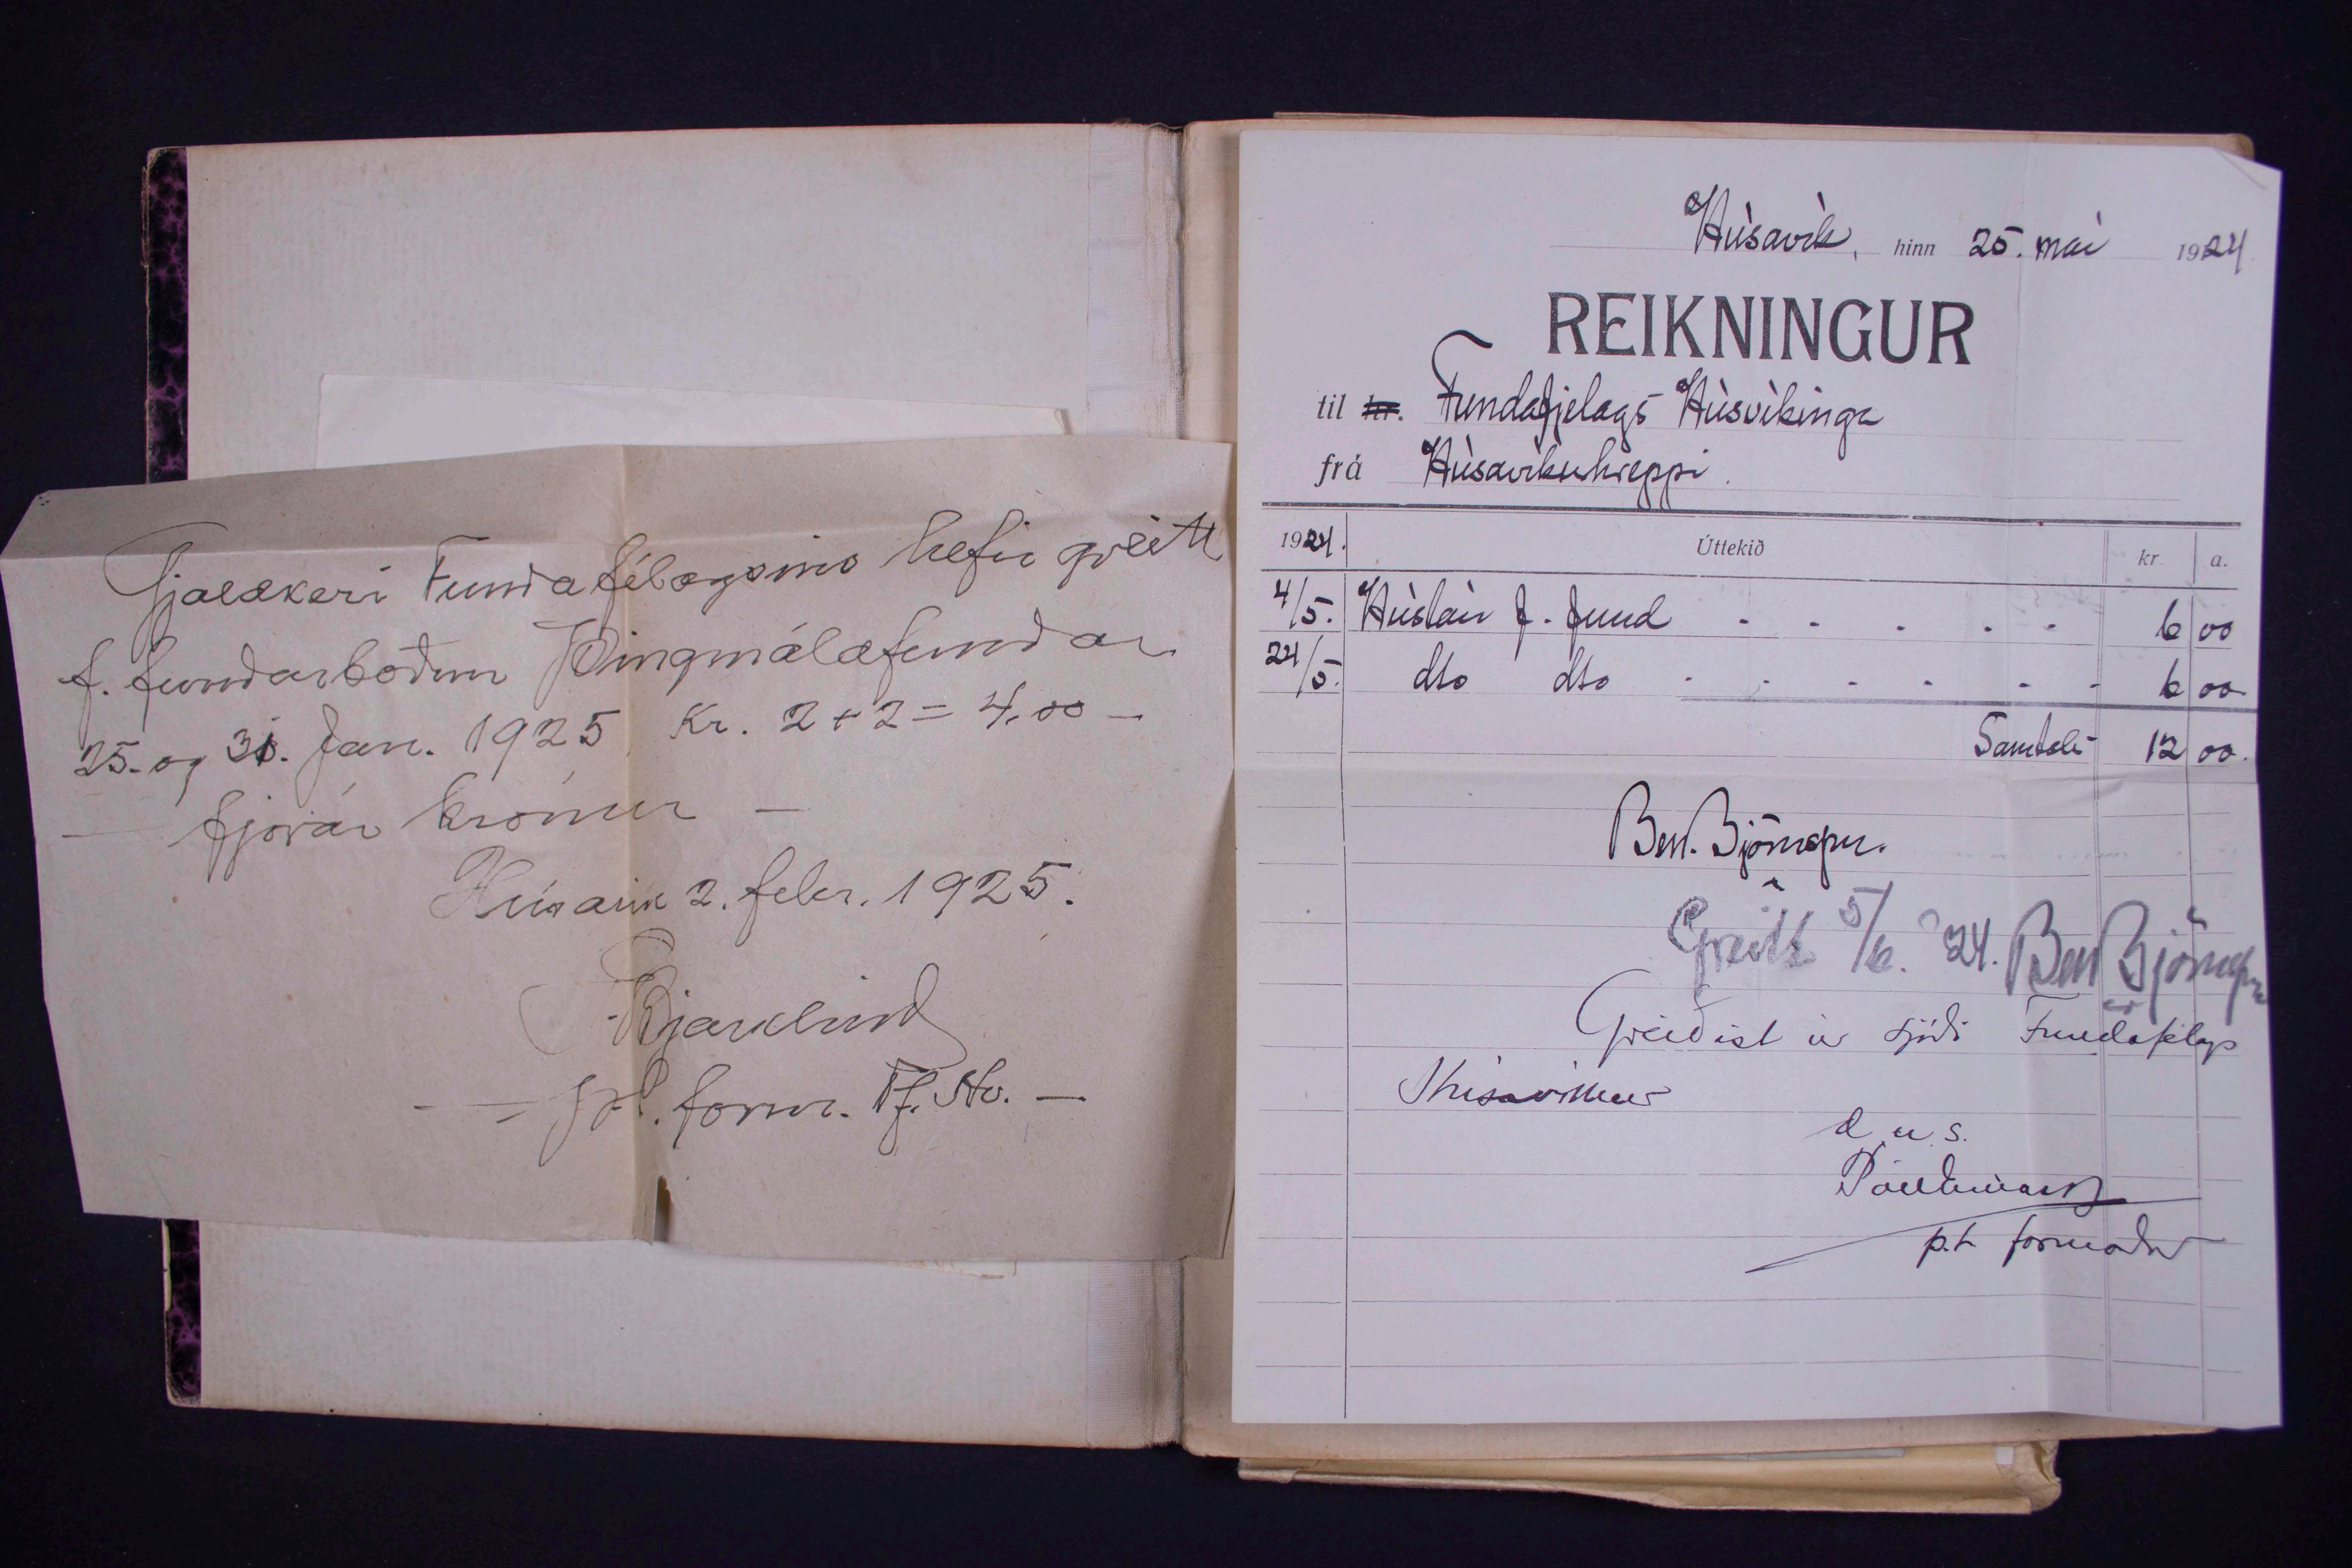 Gjaldkeri Fundafélagsins hefir greitt
f. fundarboðun Þingmálafundar
25. og 31. Jan. 1925 Kr. 2 + 2 = 4,00 —
— fjórar krónur —
Húsavík 2. febr. 1925.
Bjarklind
form. Ff. Hv. —
Húsavík, hinn 25. maí 1924
REIKNINGUR
til hr. Fundafjelags Húsvíkinga
frá Húsavíkurhreppi.
1924. Úttekið kr. a.
4/5. Húslán f. fund - - - - - 6 00
24/5. dto dto - - - - - - 6 00
Samtals 12 00.
Ben. Björnsson.
Greitt 5/6. '24. Ben Björnsson
Greiðist úr sjóði Fundafélags
Húsavíkur
d. u. s.
p.t. formaður